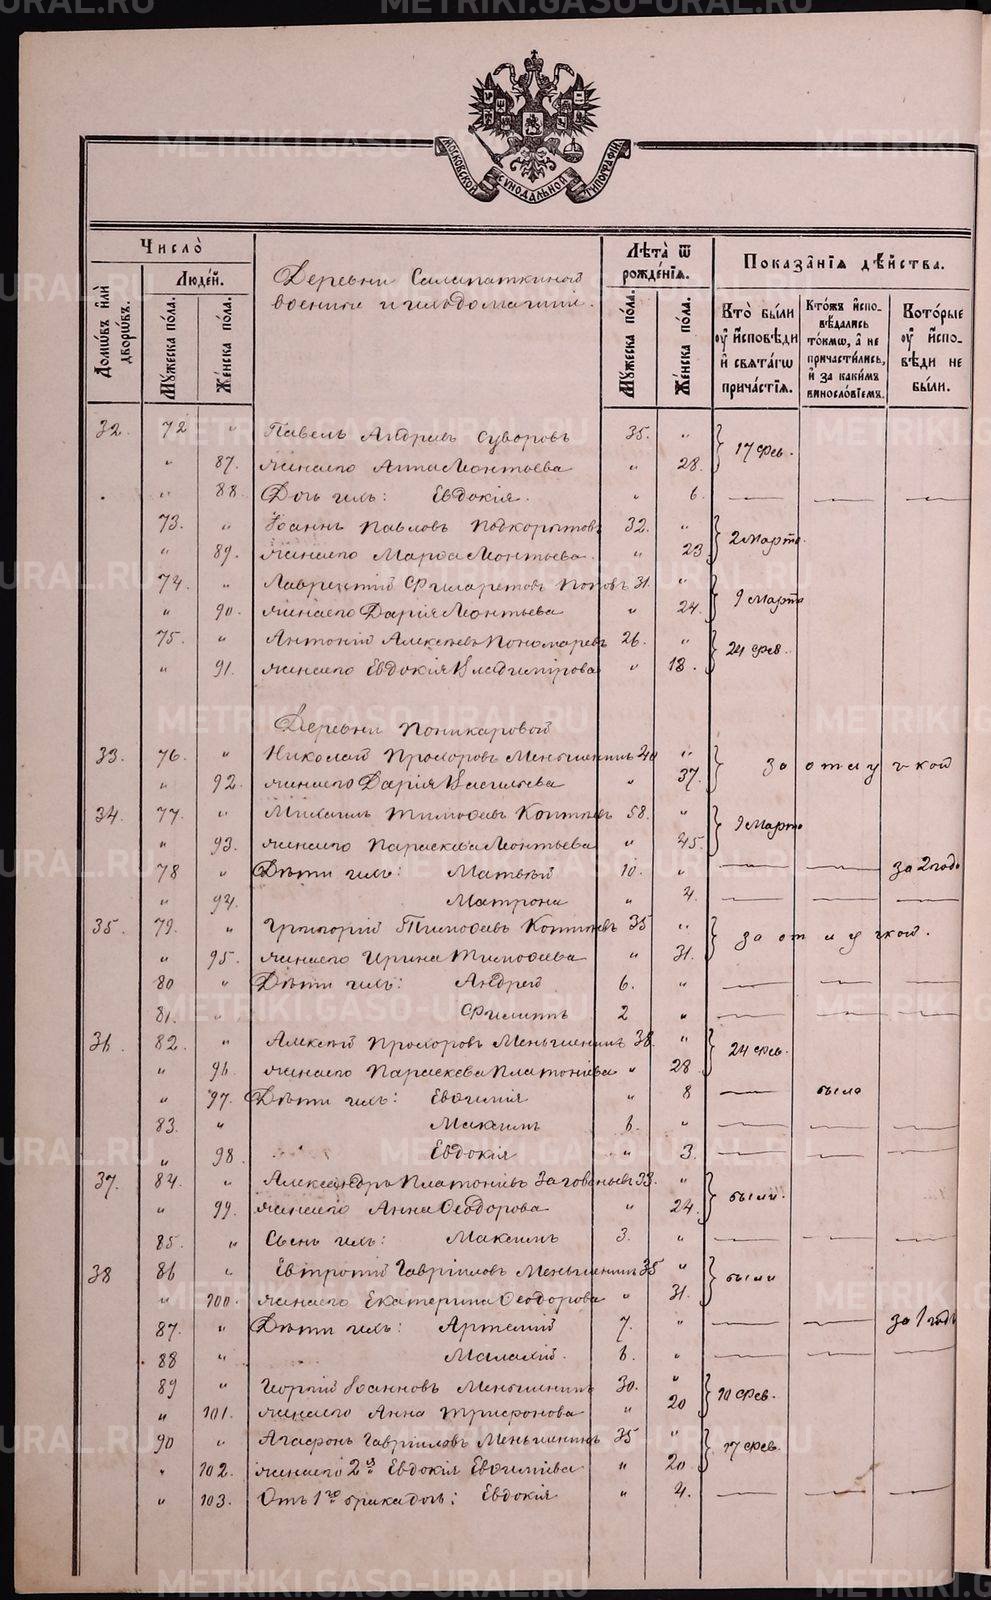 METRIKI.GASO-URAL.RU
МОСКОВСКОЙ СѴНОДАЛЬНОЙ ТИПОГРАФІИ
Число̀
Домѡ́въ и҆лѝ дворѡ́въ.
Люде́й.
Мꙋ́жеска по́ла.
Же́нска по́ла.
Деревни Салапаткиной
военные и ихъ домашніе.
Лѣ́та ѿ рожде́нїѧ.
Мꙋ́жеска по́ла.
Же́нска по́ла.
Показа̑нїѧ дѣ́йства.
Кто̀ бы́ли оу҆ и҆́сповѣди и҆ свѧта́гѡ прича́стїѧ.
Кто́жъ и҆спо-вѣ́дались то́кмѡ, а҆ не причасти́лись, и҆ за каки́мъ винослѡ́вїемъ.
Кото́рые оу҆ и҆́спо-вѣди не бы́ли.
32. 72 " Павелъ Андреевъ Суворовъ 35. " } 17 фев.
" 87. жена его Анна Леонтьева " 28.
" 88. Дочь ихъ: Евдокія. " 6.
73. " Іоаннъ Павловъ Подкорытовъ 32. " } 2 марта.
" 89. жена его Марѳа Леонтьева. " 23
74. " Лаврентій Филаретовъ Поповъ 31. " } 9 марта
" 90. жена его Дарія Леонтьева " 24.
75. " Антоній Алексѣевъ Пономаревъ 26. " } 24 фев.
" 91. жена его Евдокія Владимірова " 18.
Деревни Поникаровой
33. 76. " Николай Прохоровъ Меньшенинъ 40 " } за отлучкой
" 92. жена его Дарія Васильева " 37.
34. 77. " Михаилъ Тимоѳеевъ Коптевъ 58. " } 9 марта
" 93. жена его Параскева Леонтьева " 45.
78 " Дѣти ихъ: Матвѣй 10. " за 2 года
" 94. Матрона " 4.
35. 79. " Григорій Тимоѳеевъ Коптевъ 35 " } за отлучкой.
" 95. жена его Ирина Тимоѳеева " 31.
80 " Дѣти ихъ: Андрей 6. "
81. " Филиппъ 2 "
36. 82. " Алексѣй Прохоровъ Меньшенинъ 38. " } 24 фев.
" 96. жена его Параскева Платонова " 28
" 97. Дѣти ихъ: Евѳимія " 8 была
83. " Максимъ 6. "
" 98. Евдокія " 3.
37. 84. " Александръ Платоновъ Заговеньевъ 33. " } были.
" 99. жена его Анна Ѳеодорова " 24.
85. " Сынъ ихъ: Максимъ 3. "
38 86 " Евтропій Гавріиловъ Меньшенинъ 35 " } были
" 100. жена его Екатерина Ѳеодорова " 31.
87. " Дѣти ихъ: Артемій 7. " за 1 годъ
88 " Малахій. 6. "
89 " Георгій Іоанновъ Меньшенинъ 30. " } 10 фев.
" 101. жена его Анна Трифонова " 20
90 " Агафонъ Гавріиловъ Меньшенинъ 35 " } 17 фев.
" 102. жена его 2я Евдокія Евѳиміева " 20.
" 103. Отъ 1го брака дочь: Евдокія " 4.